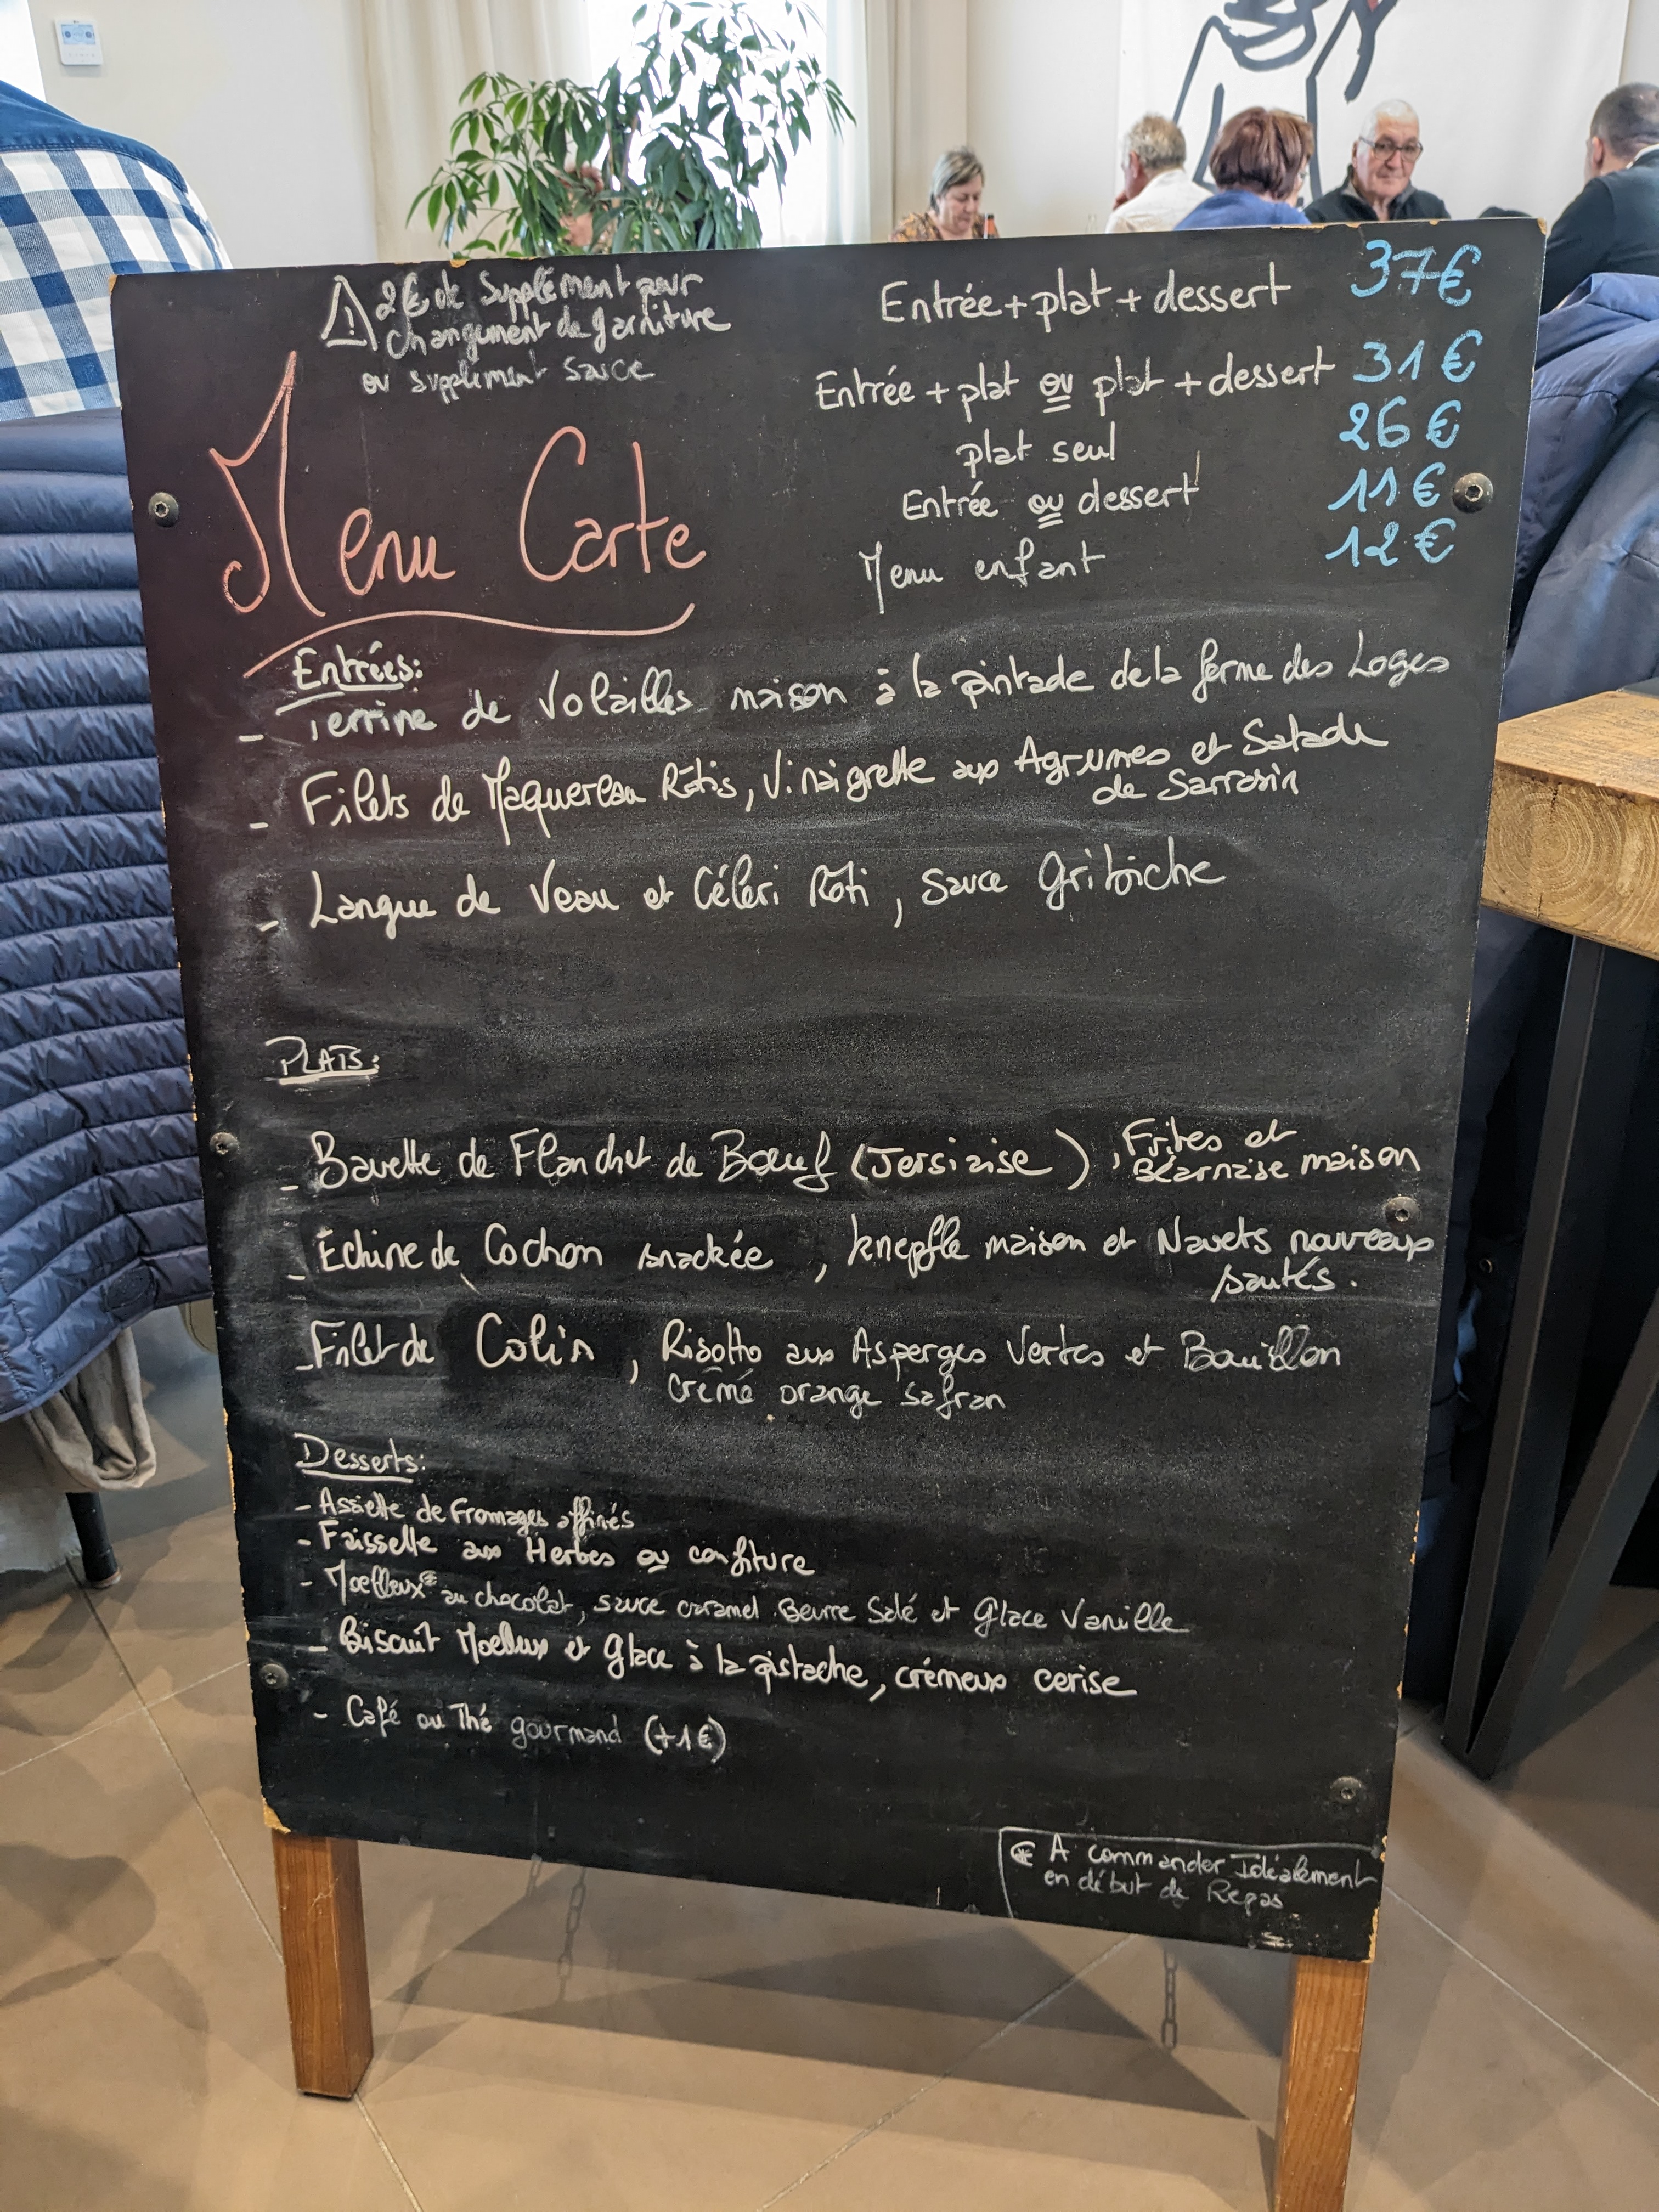 ⚠ 2€ de Supplément pour
changement de garniture
ou supplément sauce
Menu Carte
Entrée + plat + dessert 37€
Entrée + plat ou plat + dessert 31€
plat seul 26€
Entrée ou dessert 11€
Menu enfant 12€
Entrées:
- Terrine de Volailles maison à la pintade de la ferme des Loges
- Filets de Maquereau Rôtis, Vinaigrette aux Agrumes et Salade
de Sarrasin
- Langue de Veau et Céleri Rôti, sauce Gribiche
PLATS:
- Bavette de Flanchet de Bœuf (Jersiaise), Frites et
Béarnaise maison
- Échine de Cochon snackée, knepfle maison et Navets nouveaux
sautés.
- Filet de Colin, Risotto aux Asperges Vertes et Bouillon
crémé orange safran
Desserts:
- Assiette de Fromages affinés
- Faisselle aux Herbes ou confiture
- Moelleux* au chocolat, sauce caramel Beurre Salé et Glace Vanille
- Biscuit Moelleux et Glace à la pistache, crémeux cerise
- Café ou Thé gourmand (+1€)
* A commander Idéalement
en début de Repas